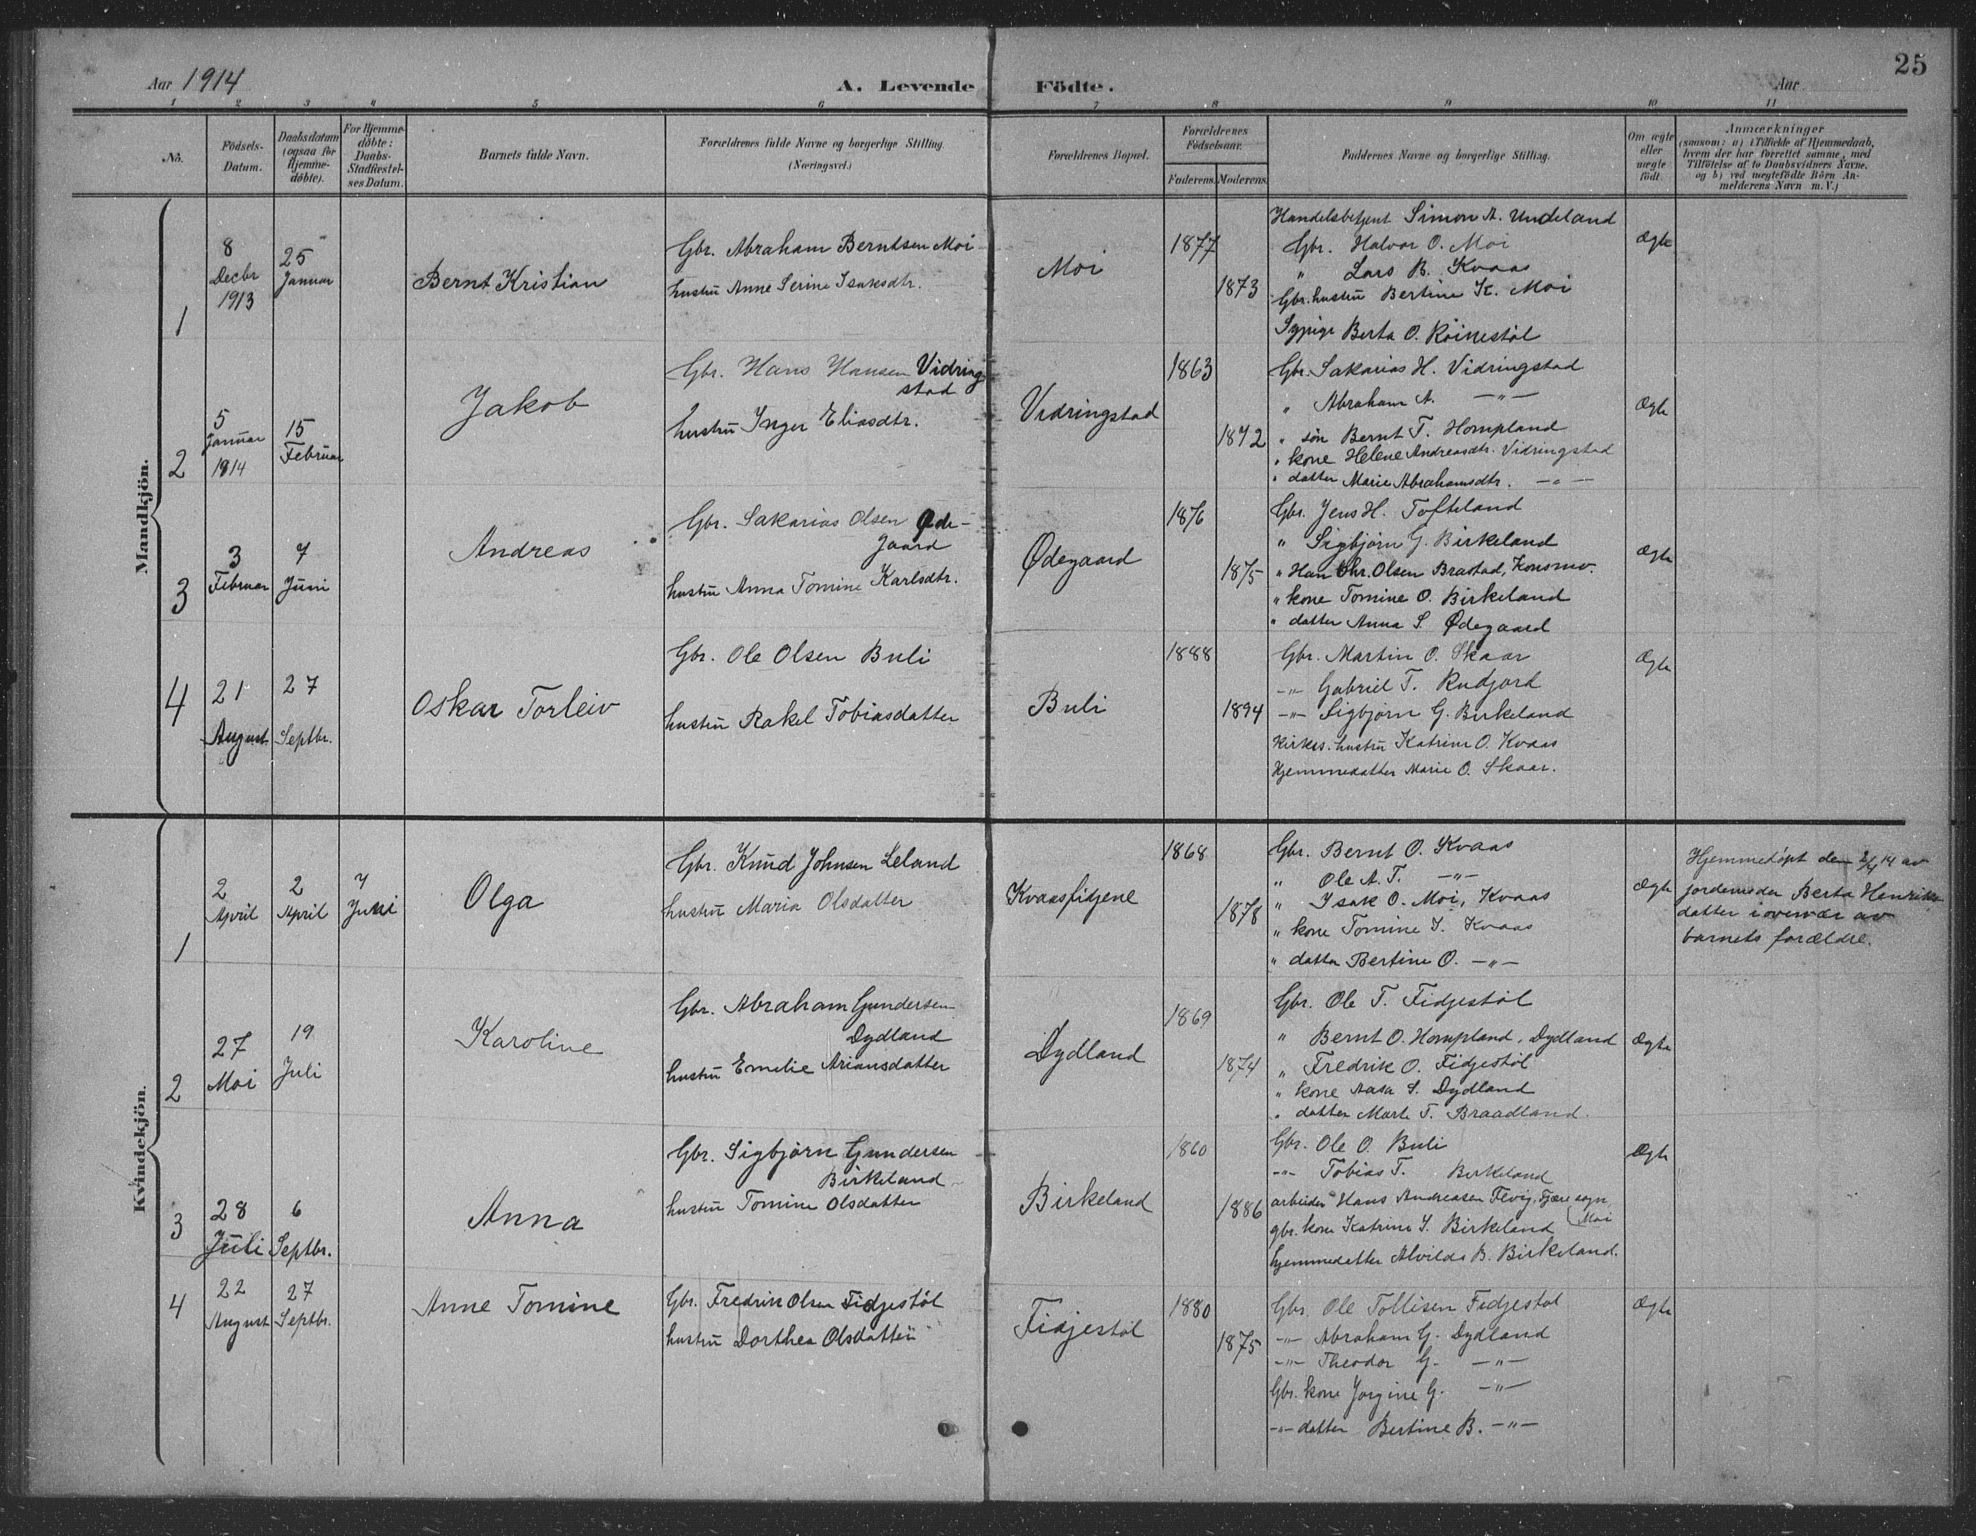 25
Aar 1914
A. Levende Födte.
Aar
1 2 3 4 5 6 7 8 9 10 11
No.
Födsels-
Datum.
Daabsdatum
(ogsaa for
Hjemme-
döbte).
For Hjemme-
döbte:
Daabs-
Stadfæstel-
ses Datum.
Barnets fulde Navn.
Forældrenes fulde Navne og borgerlige Stilling.
(Næringsvei.)
Forældrenes Bopæl.
Forældrenes
Födselsaar.
Faderens. Moderens.
Faddernes Navne og borgerlige Stilling.
Om ægte
eller
uægte
födt.
Anmærkninger
(saasom: a) i Tilfælde af Hjemmedaab,
hvem der har forrettet samme, med
Tilföielse af to Daabsvidners Navne,
og b) ved uægtefödte Börn An-
melderens Navn m. V.)
Mandkjön.
1
8
Decbr
1913
25
Januar
Bernt Kristian
Gbr. Abraham Berntsen Moi
hustru Anne Serine Isaksdtr.
Moi
1877
1873
Handelsbetjent Simon A. Undeland
Gbr. Halvor O. Moi
" Lars B. Kvaas
Gbr. hustru Bertine K. Moi
Sypige Berta O. Röinestöl
Ægte
2
5
Januar
1914
15
Februar
Jakob
Gbr. Hans Hansen Vidring
stad
hustru Inger Eliasdtr.
Vidringstad
1863
1872
Gbr. Sakarias H. Vidringstad
" Abraham A. —"—
" sön Bernt T. Hompland
" kone Helene Andreasdtr. Vidringstad
" datter Marie Abrahamsdtr. —"—
Ægte
3
3
Februar
7
Juni
Andreas
Gbr. Sakarias Olsen Øde-
gaard
hustru Anna Tomine Karlsdtr.
Ødegaard
1876
1875
Gbr. Jens H. Tofteland
" Sigbjørn G. Birkeland
" Han Chr. Olsen Brastad, Konsmo.
" kone Tomine O. Birkeland
" datter Anna S. Ødegaard
Ægte
4
21
August
27
Septbr.
Oskar Torleiv
Gbr. Ole Olsen Buli
hustru Rakel Tobiasdatter
Buli
1888
1894
Gbr. Martin O. Skaar
—"— Gabriel T. Rudjord
—"— Sigbjørn G. Birkeland
Kirkes. hustru Katrine O. Kvaas
Hjemmedatter Marie O. Skaar.
Ægte
Kvindekjön.
1
2
April
2
April
7
Juni
Olga
Gbr. Knud Johnsen Leland
hustru Maria Olsdatter
Kvaasfidjene
1868
1878
Gbr. Bernt O. Kvaas
" Ole A. T. —"—
" Isak O. Moi, Kvaas
" kone Tomine I. Kvaas
" datter Bertine O. —"—
Ægte
Hjemmedøpt den 2/4 14 av
jordemoder Berta Henriks-
datter i overvær av
barnets forældre.
2
27
Mai
19
Juli
Karoline
Gbr. Abraham Gundersen
Dydland
hustru Emelie Ariansdatter
Dydland
1869
1874
Gbr. Ole T. Fidjestöl
" Bernt O. Hompland, Dydland
" Fredrik O. Fidjestöl
" kone Aasa S. Dydland
" datter Marte T. Braadland.
Ægte
3
28
Juli
6
Septbr.
Anna
Gbr. Sigbjörn Gundersen
Birkeland
hustru Tomine Olsdatter
Birkeland
1860
1886
Gbr. Ole O. Buli
—"— Tobias T. Birkeland
arbeider Hans Andreasen Flevig, Fjære sogn
(Moi
gbr. kone Katrine I. Birkeland
hjemmedatter Alvilde B. Birkeland.
Ægte
4
22
August
27
Septbr.
Anne Tomine
Gbr. Fredrik Olsen Fidjestöl
hustru Dorthea Olsdatter
Fidjestöl
1880
1875
Gbr. Ole Tollisen Fidjestöl
—"— Abraham G. Dydland
—"— Theodor G. —"—
Gbr. kone Jorgine G. —"—
—"— datter Bertine B. —"—
Ægte